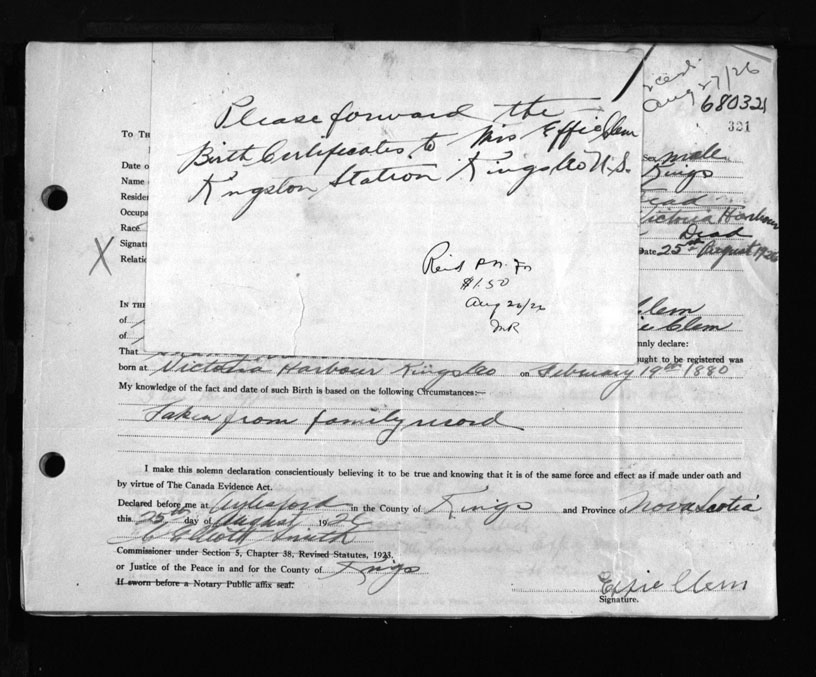 Aug 27/26
680321
321
Please forward the
Birth Certificates to Mrs Effie Clem
Kingston Station Kings Co N.S.
Aug 26/26
MR
$1.50
To Th
Date o
Sex male
Name
Kings
Reside
Dead
Occupa
Victoria Harbour
Race
Dead
Signat
Date 25th August 1926
Relatio
X
In the
Clem
of
Clem
of
mnly declare:
That
ught to be registered was
born at Victoria Harbour Kings Co on February 19th 1880
My knowledge of the fact and date of such Birth is based on the following Circumstances:—
Taken from family record
I make this solemn declaration conscientiously believing it to be true and knowing that it is of the same force and effect as if made under oath and
by virtue of The Canada Evidence Act.
Declared before me at Aylesford in the County of Kings and Province of Nova Scotia
this 25th day of August 1926
Elliott Smith
Commissioner under Section 5, Chapter 38, Revised Statutes, 1923.
or Justice of the Peace in and for the County of Kings
If sworn before a Notary Public affix seal.
Effie Clem
Signature.